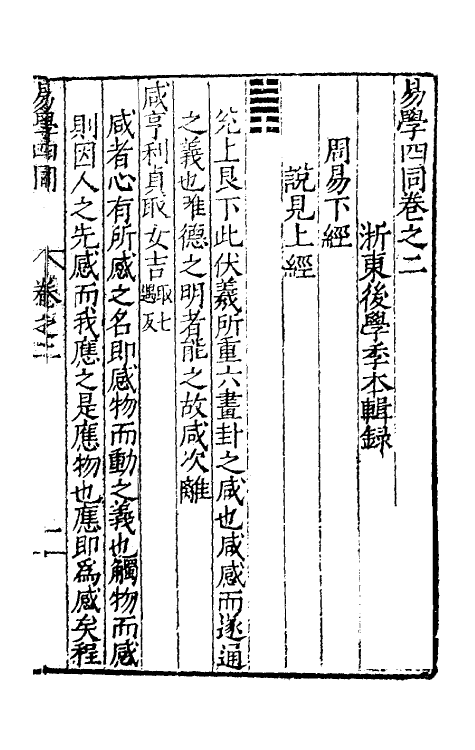 易學四同卷之二
浙東後學季本輯録
周易下經
說見上經
兊上艮下此伏羲所重六畫卦之咸也咸感而遂通
之義也惟德之明者能之故咸次離
咸亨利貞取女吉取七遇反
咸者心有所感之名即感物而動之義也觸物而感
則因人之先感而我應之是應物也應即爲感矣程
易學四同 卷之二 一